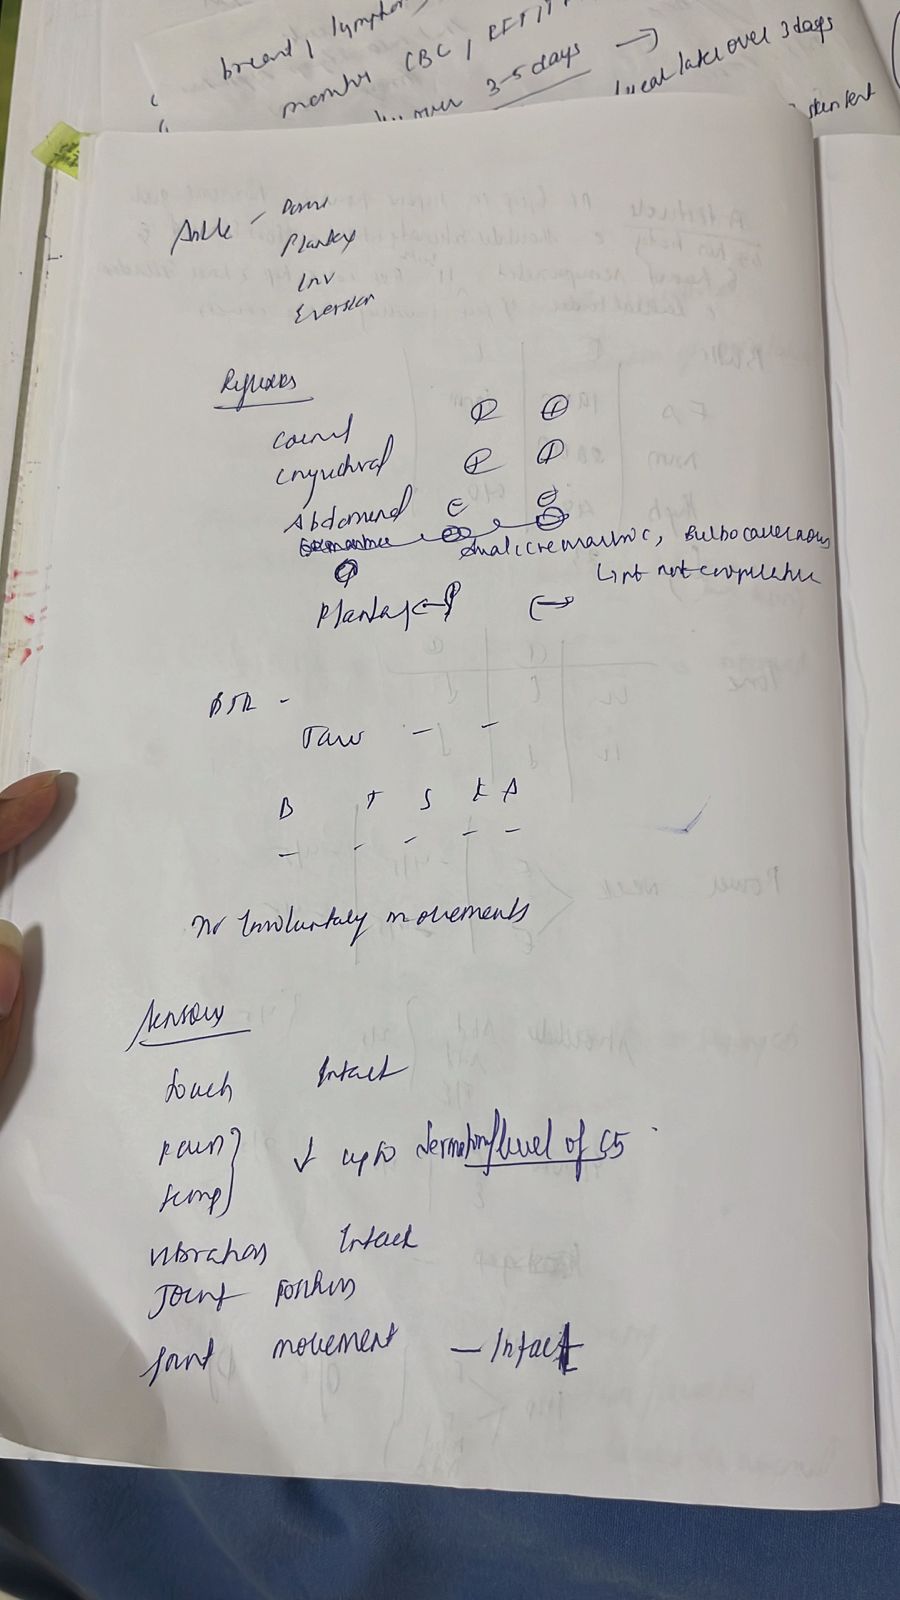 breast, lymph
monitor CBC, RFT,
over 3-5 days →
over 3 days
Ankle - Dorsi
Plantar
Inv
Eversion
Reflexes
Corneal ⊕ ⊕
Conjuctival ⊕ ⊕
Abdominal ⊖ ⊖
Anal, cremasteric, Bulbocavernous
↳ pt not cooperative
Plantar
DTR -
Jaw - -
B T S K A
- - - - -
No Involuntary movements
Sensory
touch Intact
Pain }
temp } ↓ upto dermatomy level of C5
vibrations Intact
Joint Position
Joint movement — Intact